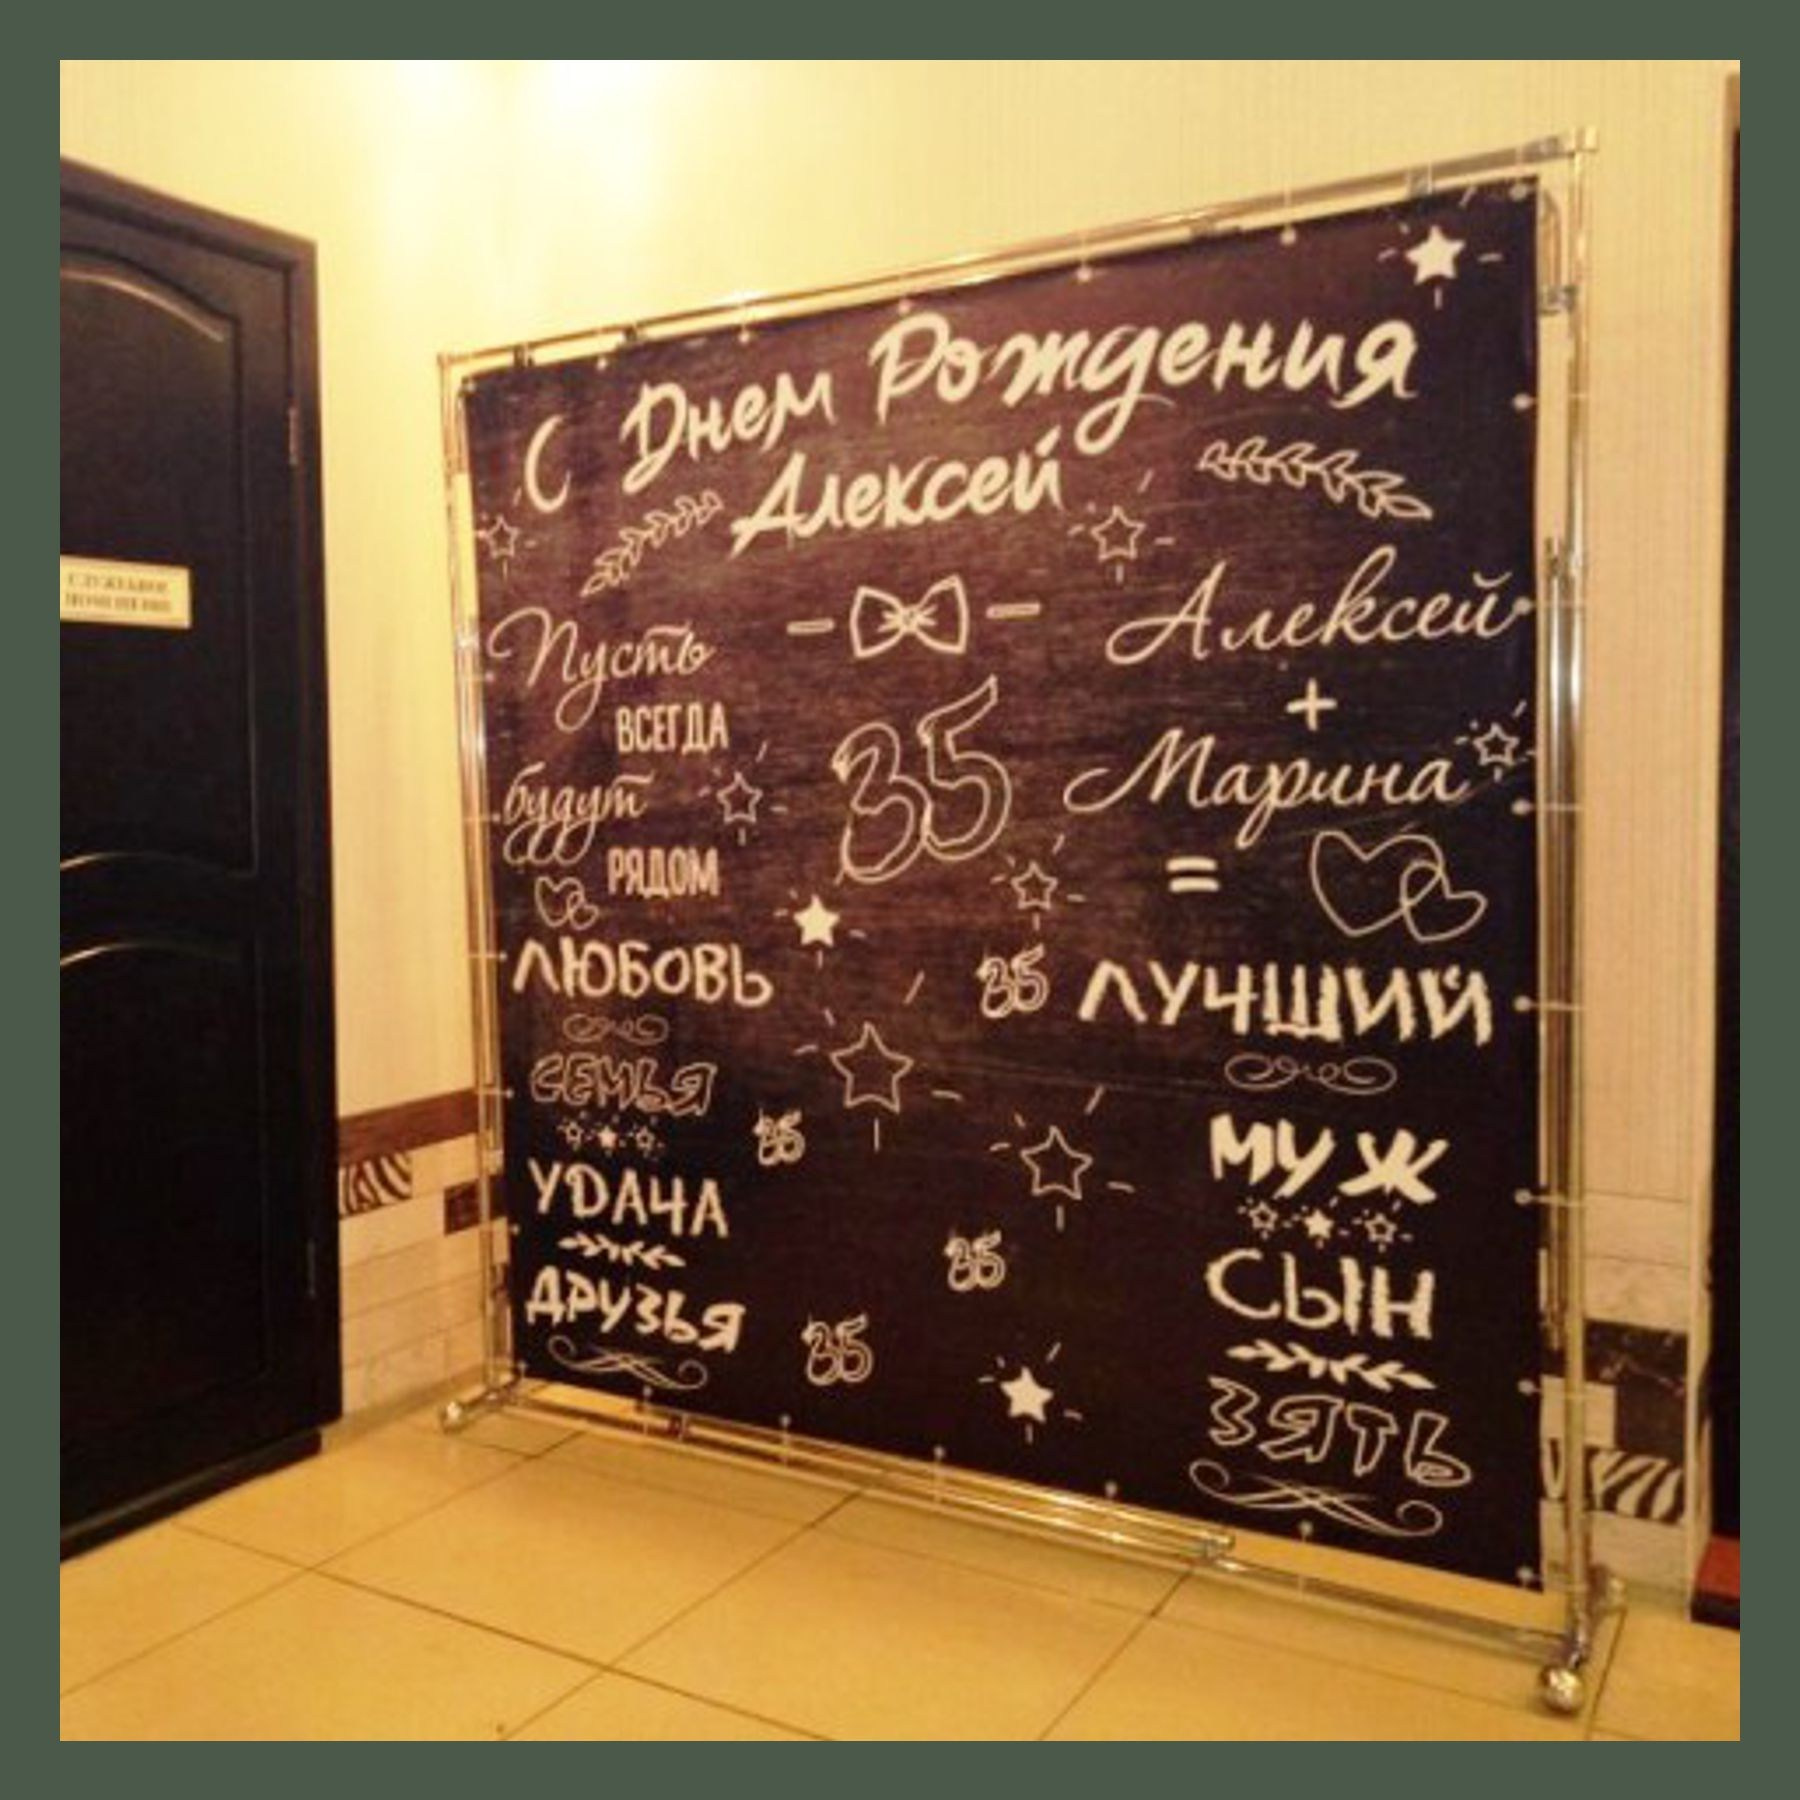 С Днем Рождения
Алексей
Пусть
ВСЕГДА
будут
РЯДОМ
ЛЮБОВЬ
СЕМЬЯ
УДАЧА
ДРУЗЬЯ
35
35
35
35
35
Алексей
+
Марина
=
ЛУЧШИЙ
МУЖ
СЫН
ЗЯТЬ
СЛУЖЕБНОЕ
ПОМЕЩЕНИЕ